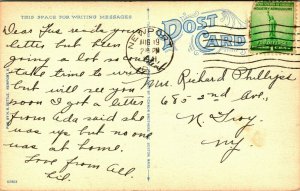 THIS SPACE FOR WRITING MESSAGES
POST CARD
NEWPORT
AUG 19
2 PM
Dear Fae rec'd your
letter but been
going a lot so could
take time to write
but will see you
soon I got a letter
from Ada said she
was up, but no one
was at home.
Love from all.
Mrs. Richard Phillips
685 2nd Ave.,
N. Troy.
NY